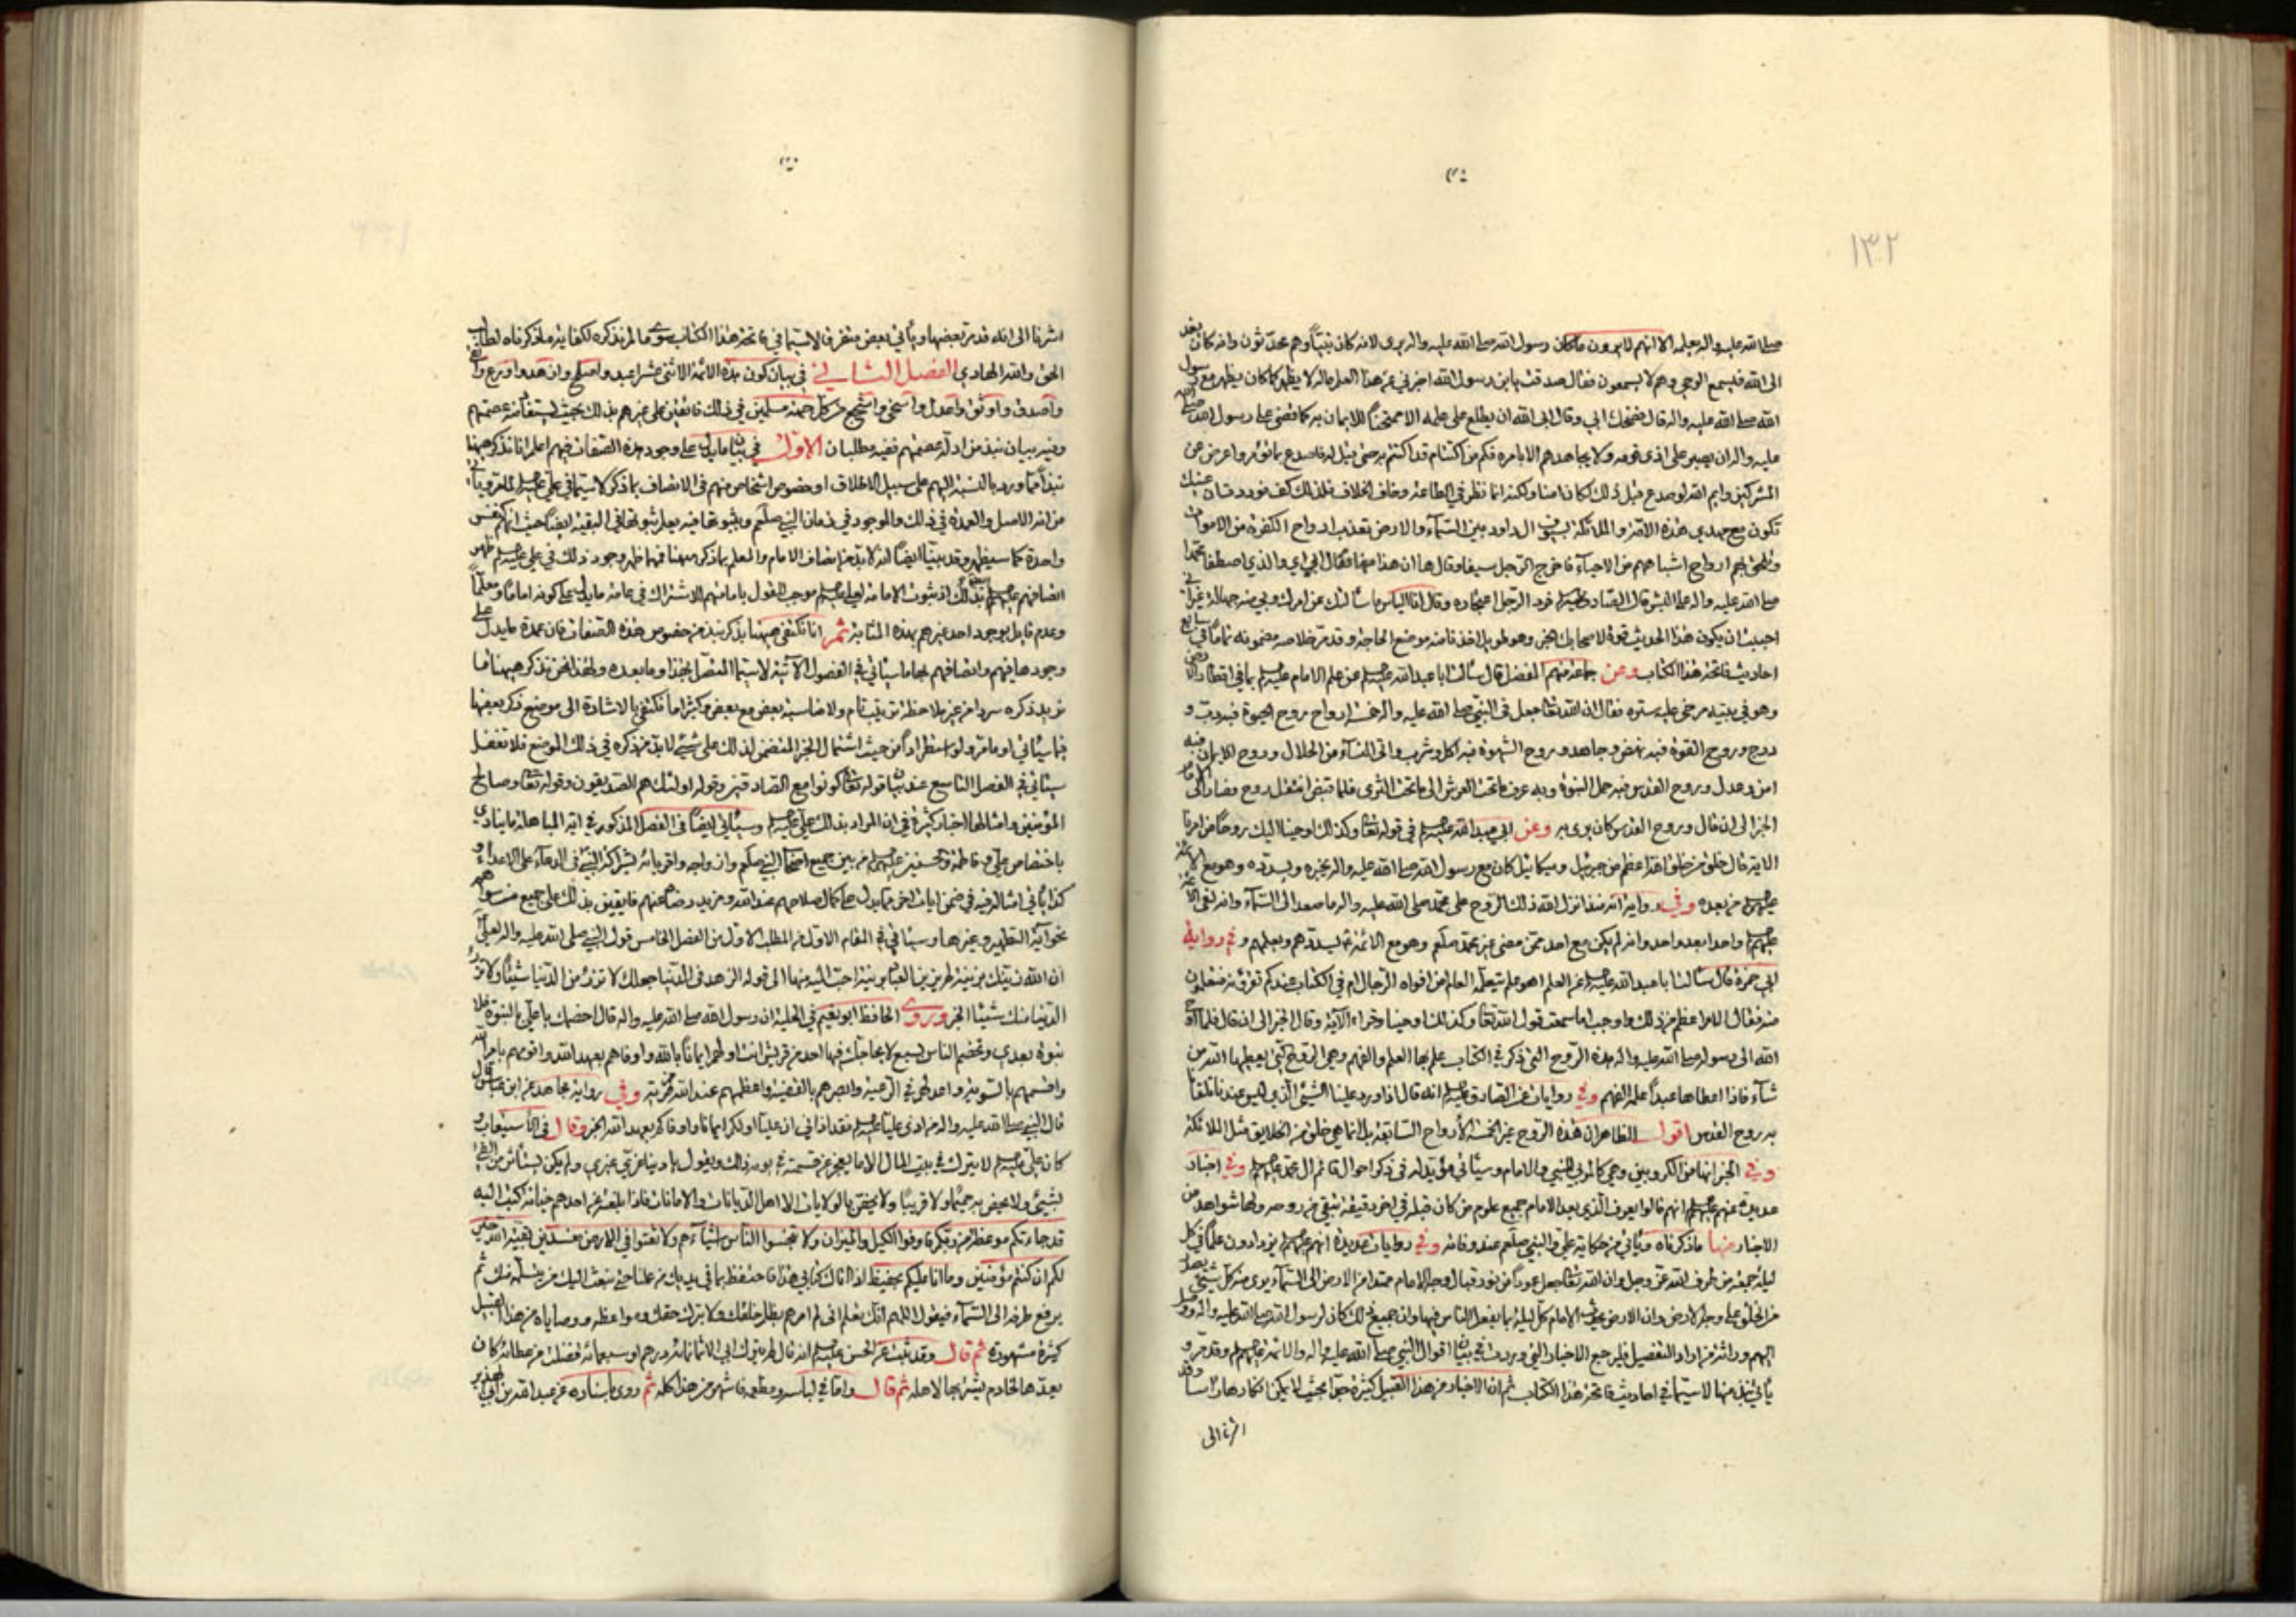 ١٣٢
صلى الله عليه واله يعلمه الا انهم لا يرون ما كان رسول الله صلى الله عليه واله يرى لانه كان نبيا وهم محدثون وانه كان يفد
الى الله فيسمع الوحي وهم لا يسمعون فقال صدقت يا بن رسول الله اخبرني عن هذا العلم ماله لا يظهر كما كان يظهر مع رسول
الله صلى الله عليه واله قال فضحك ابي وقال ابى الله ان يطلع على علمه الا ممتحنا للايمان به كما قضى على رسول الله صلى الله
عليه واله ان يصبر على اذى قومه ولا يجاهدهم الا بامره فكم من اكتتام قد اكتتم به حتى قيل له فاصدع بما تؤمر واعرض عن
المشركين وايم الله لو صدع قبل ذلك لكان امنا ولكنه انما نظر في الطاعة وخاف الخلاف فلذلك كف فوددت ان عينك
تكون مع مهدي هذه الامة والملائكة بسيوف ال داود بين السماء والارض تعذب ارواح الكفرة من الاموات
وتلحق بهم ارواح اشباههم من الاحياء فاخرج الرجل سيفا وقال ها ان هذا منها فقال ابي اي والذي اصطفى محمدا
صلى الله عليه واله على البشر قال فرد الرجل اعتجاره وقال انا الياس ما سالتك عن امرك وبي منه جهالة غير اني
احببت ان يكون هذا الحديث قوة لاصحابك الخبر وهو طويل اخذنا منه موضع الحاجة وقد مر خلاصة مضمونه تماما في سابع
احاديث فاتحة هذا الكتاب وعن جماعة منهم المفضل قال سالت ابا عبد الله عليه السلام عن علم الامام عليه السلام بما في اقطار الارض
وهو في بيته مرخى عليه ستره فقال ان الله تعا جعل في النبي صلى الله عليه واله خمسة ارواح روح الحيوة فبه دب و
درج وروح القوة فبه نهض وجاهد وروح الشهوة فبه اكل وشرب واتى النساء من الحلال وروح الايمان فبه
امن وعدل وروح القدس فبه حمل النبوة وبه عرف ما تحت العرش الى ما تحت الثرى فلما قبض انتقل روح فصار الى الامام
الخبر الى ان قال وروح القدس كان يرى به وعن ابي عبد الله عليه السلام في قوله تعا وكذلك اوحينا اليك روحا من امرنا
الاية قال خلق من خلق الله اعظم من جبرئيل وميكائيل كان مع رسول الله صلى الله عليه واله يخبره ويسدده وهو مع الائمة
عليهم السلام من بعده وفي رواية انه منذ انزل الله ذلك الروح على محمد صلى الله عليه واله ما صعد الى السماء وانه لفي الائمة
عليهم السلام واحدا بعد واحد وانه لم يكن مع احد ممن مضى غير محمد صلعم وهو مع الائمة يسددهم ويعلمهم وفي رواية
ابي حمزة قال سالت ابا عبد الله عليه السلام عن العلم اهو علم يتعلمه العالم من افواه الرجال ام في الكتاب عندكم تقرؤنه فتعلمون
منه فقال الامر اعظم من ذلك واوجب اما سمعت قول الله تعا وكذلك اوحينا وقراء الاية وقال الخبر الى ان قال فلما اوحى
الله الى رسوله صلى الله عليه واله هذه الروح التي ذكر في الكتاب علم بها العلم والفهم وهي الروح التي يعطيها الله من
شاء فاذا اعطاها عبدا علمه الفهم وفي روايات عن الصادق عليه السلام انه قال اذا ورد علينا الشيء الذي ليس عندنا تلقانا
به روح القدس اقول الظاهر ان هذه الروح غير الخمسة الارواح السابقة بل انما هي خلق من الخلايق مثل الملائكة
وفي الخبر انها من الكروبيين وهي كالمربي للنبي والامام وسياتي مؤيد له في ذكر احوال قائم ال محمد عليهم السلام وفي اخبار
عديدة عنهم عليهم السلام انهم قالوا يعرف الذي بعد الامام جميع علوم من كان قبله في اخر دقيقة تبقى من روحه ولها شواهد من
الاخبار منها ما ذكرناه وياتي من حكاية علي والنبي صلعم عند وفاته وفي روايات عديدة انهم عليهم السلام يزدادون علما في كل
ليلة جمعة من طرف الله عز وجل وان الله تعا جعل عمودا من نور قبال وجه الامام ممتدا من الارض الى السماء يرى منه كل شيء
من الخلق على وجه الارض وان الارض الامام كل ليلة بما يفعل الناس فيها وان جميع ذلك كان لرسول الله صلى الله عليه واله ووصل
اليهم وراثة فمن اراد التفصيل فليرجع الاخبار التي وردت في بيان اقوال النبي صلى الله عليه واله والائمة عليهم السلام وقد مر و
ياتي نبذ منها لا سيما في احاديث فاتحة هذا الكتاب ثم ان الاخبار من هذا القبيل كثيرة جدا بحيث لا يمكن انكارها راسا وقد
اشرنا الى
اشرنا الى انه قد مر بعضها وياتي بعض متفرق لا سيما في فاتحة هذا الكتاب سوى ما لم نذكره لكفاية ما ذكرناه لطالب
الحق والله الهادي الفصل الثاني في بيان كون هذه الائمة الاثنى عشر اعبد واصلح وازهد واورع واتقى
واصدق واوثق واعدل واسخى واشجع من كل جهة مسلمين في ذلك فائقين على غيرهم بذلك بحيث يستفاد منه عصمتهم
وفيه بيان نبذ من ادلة عصمتهم ففيه مطلبان الاول في بيان ما يدل على وجود هذه الصفات فيهم اعلم انا نذكر ههنا
نبذا مما ورد بالنسبة اليهم على سبيل الاطلاق او خصوص اشخاص منهم في الاتصاف بما ذكر لا سيما في علي عليه السلام
من انه الاصل والعمدة في ذلك والموجود في زمان النبي صلعم وبثبوتها فيه يعلم ثبوتها في البقية ايضا حيث انهم كنفس
واحدة كما سيظهر وقد بينا ايضا انه لا بد من اتصاف الامام والمعلم بما ذكر ههنا فمهما ظهر وجود ذلك في علي عليه السلام ظهر
اتصافهم عليهم السلام بذلك اذ ثبوت الامامة لعلي عليه السلام موجب القول بامامتهم الاشتراك في عامة ما يدل على كونه اماما ومعلما
وعدم قابل بوجود احد غيرهم بهذه المثابة ثم انا نكتفي ههنا بذكر نبذ من خصوص هذه الصفات فان عمدة ما يدل على
وجودها فيهم واتصافهم بها ما سياتي في الفصول الاتية لا سيما الفصل هذا وما بعده ولهذا نحن نذكر ههنا ما
نريد ذكره سردا من غير ملاحظة ترتيب تام ولا مناسبة بعض مع بعض وكثيرا ما نكتفي بالاشارة الى موضع ذكر بعضها
فيما سياتي او ما مر ولو استطرادا من حيث اشتمال الخبر المتضمن لذلك على شيء لا بد من ذكره في ذلك الموضع فلا تغفل
سياتي في الفصل التاسع عند بيان قوله تعا كونوا مع الصادقين وقوله اولئك هم الصديقون وقوله تعا وصالح
المؤمنين وامثالها اخبار كثيرة في ان المراد بذلك علي عليه السلام وسياتي ايضا في الفصل المذكور في اية المباهلة ما ينادي
باختصاص علي وفاطمة والحسنين عليهم السلام من بين جميع اصحاب النبي صلعم وازواجه واقربائه بشراكة النبي في الدعاء على الاعداء و
كذا ياتي امثاله فيه في ضمن ايات اخر مما يدل على كمال صلاحهم عند الله ومزيد رضاه عنهم فايقين بذلك على جميع من سواهم
نحو اية التطهير وغيرها وسياتي في المقام الاول من المطلب الاول من الفصل الخامس قول النبي صلى الله عليه واله لعلي
ان الله زينك بزينة لم يزين العباد بزينة احب اليه منها الى قوله الزهد في الدنيا جعلك لا ترزء من الدنيا شيئا ولا ترزء
الدنيا منك شيئا الخبر وروى الحافظ ابو نعيم في الحلية ان رسول الله صلى الله عليه واله قال اخصمك يا علي بالنبوة فلا
نبوة بعدي وتخصم الناس بسبع لا يحاجك فيها احد من قريش انت اولهم ايمانا بالله واوفاهم بعهد الله واقومهم بامر الله
واقسمهم بالسوية واعدلهم في الرعية وابصرهم بالقضية واعظمهم عند الله مزية وفي رواية مجاهد عن ابن عباس قال
قال النبي صلى الله عليه واله من اذى عليا عليه السلام فقد اذاني ان عليا اولكم ايمانا واوفاكم بعهد الله الخبر وقال في الاستيعاب
كان علي عليه السلام لا يترك في بيت المال الا ما يعجز عن قسمته في يومه ذلك ويقول يا دنيا غري غيري ولم يكن يستاثر من الفيء
بشيء ولا يخص به حميما ولا قريبا ولا يخص بالولايات الا اهل الديانات والامانات فاذا بلغه عن احدهم خيانة كتب اليه
قد جاءتكم موعظة من ربكم فاوفوا الكيل والميزان ولا تبخسوا الناس اشياءهم ولا تعثوا في الارض مفسدين بقية الله خير
لكم ان كنتم مؤمنين وما انا عليكم بحفيظ اذا اتاك كتابي هذا فاحتفظ بما في يديك من عملنا حتى نبعث اليك من يتسلمه منك ثم
يرفع طرفه الى السماء فيقول اللهم انك تعلم اني لم امرهم بظلم خلقك ولا بترك حقك ومواعظه ووصاياه من هذا القبيل
كثيرة مشهورة ثم قال وقد ثبت عن الحسن عليه السلام انه قال لم يترك ابي الا ثمانمائة درهم او سبعمائة فضلت من عطائه كان
يعدها لخادم يشتريها لاهله ثم قال واما في لباسه ومطعمه فاشهر من هذا كله ثم روى باسناده عن عبد الله بن ابي الهذيل